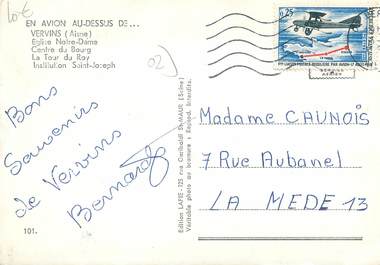 10€
EN AVION AU-DESSUS DE...
VERVINS (Aisne)
Eglise Notre-Dame
Centre du Bourg
La Tour du Roy
Institution Saint-Joseph
02)
0,25
Bons
Souvenirs
de Vervins
Bernard
101.
Edition LAPIE - 125 rue Garibaldi St-MAUR (Seine)
Véritable photo au bromure - Reprod. Interdite.
Madame CAUNOIS
7 Rue Aubanel
LA MEDE 13